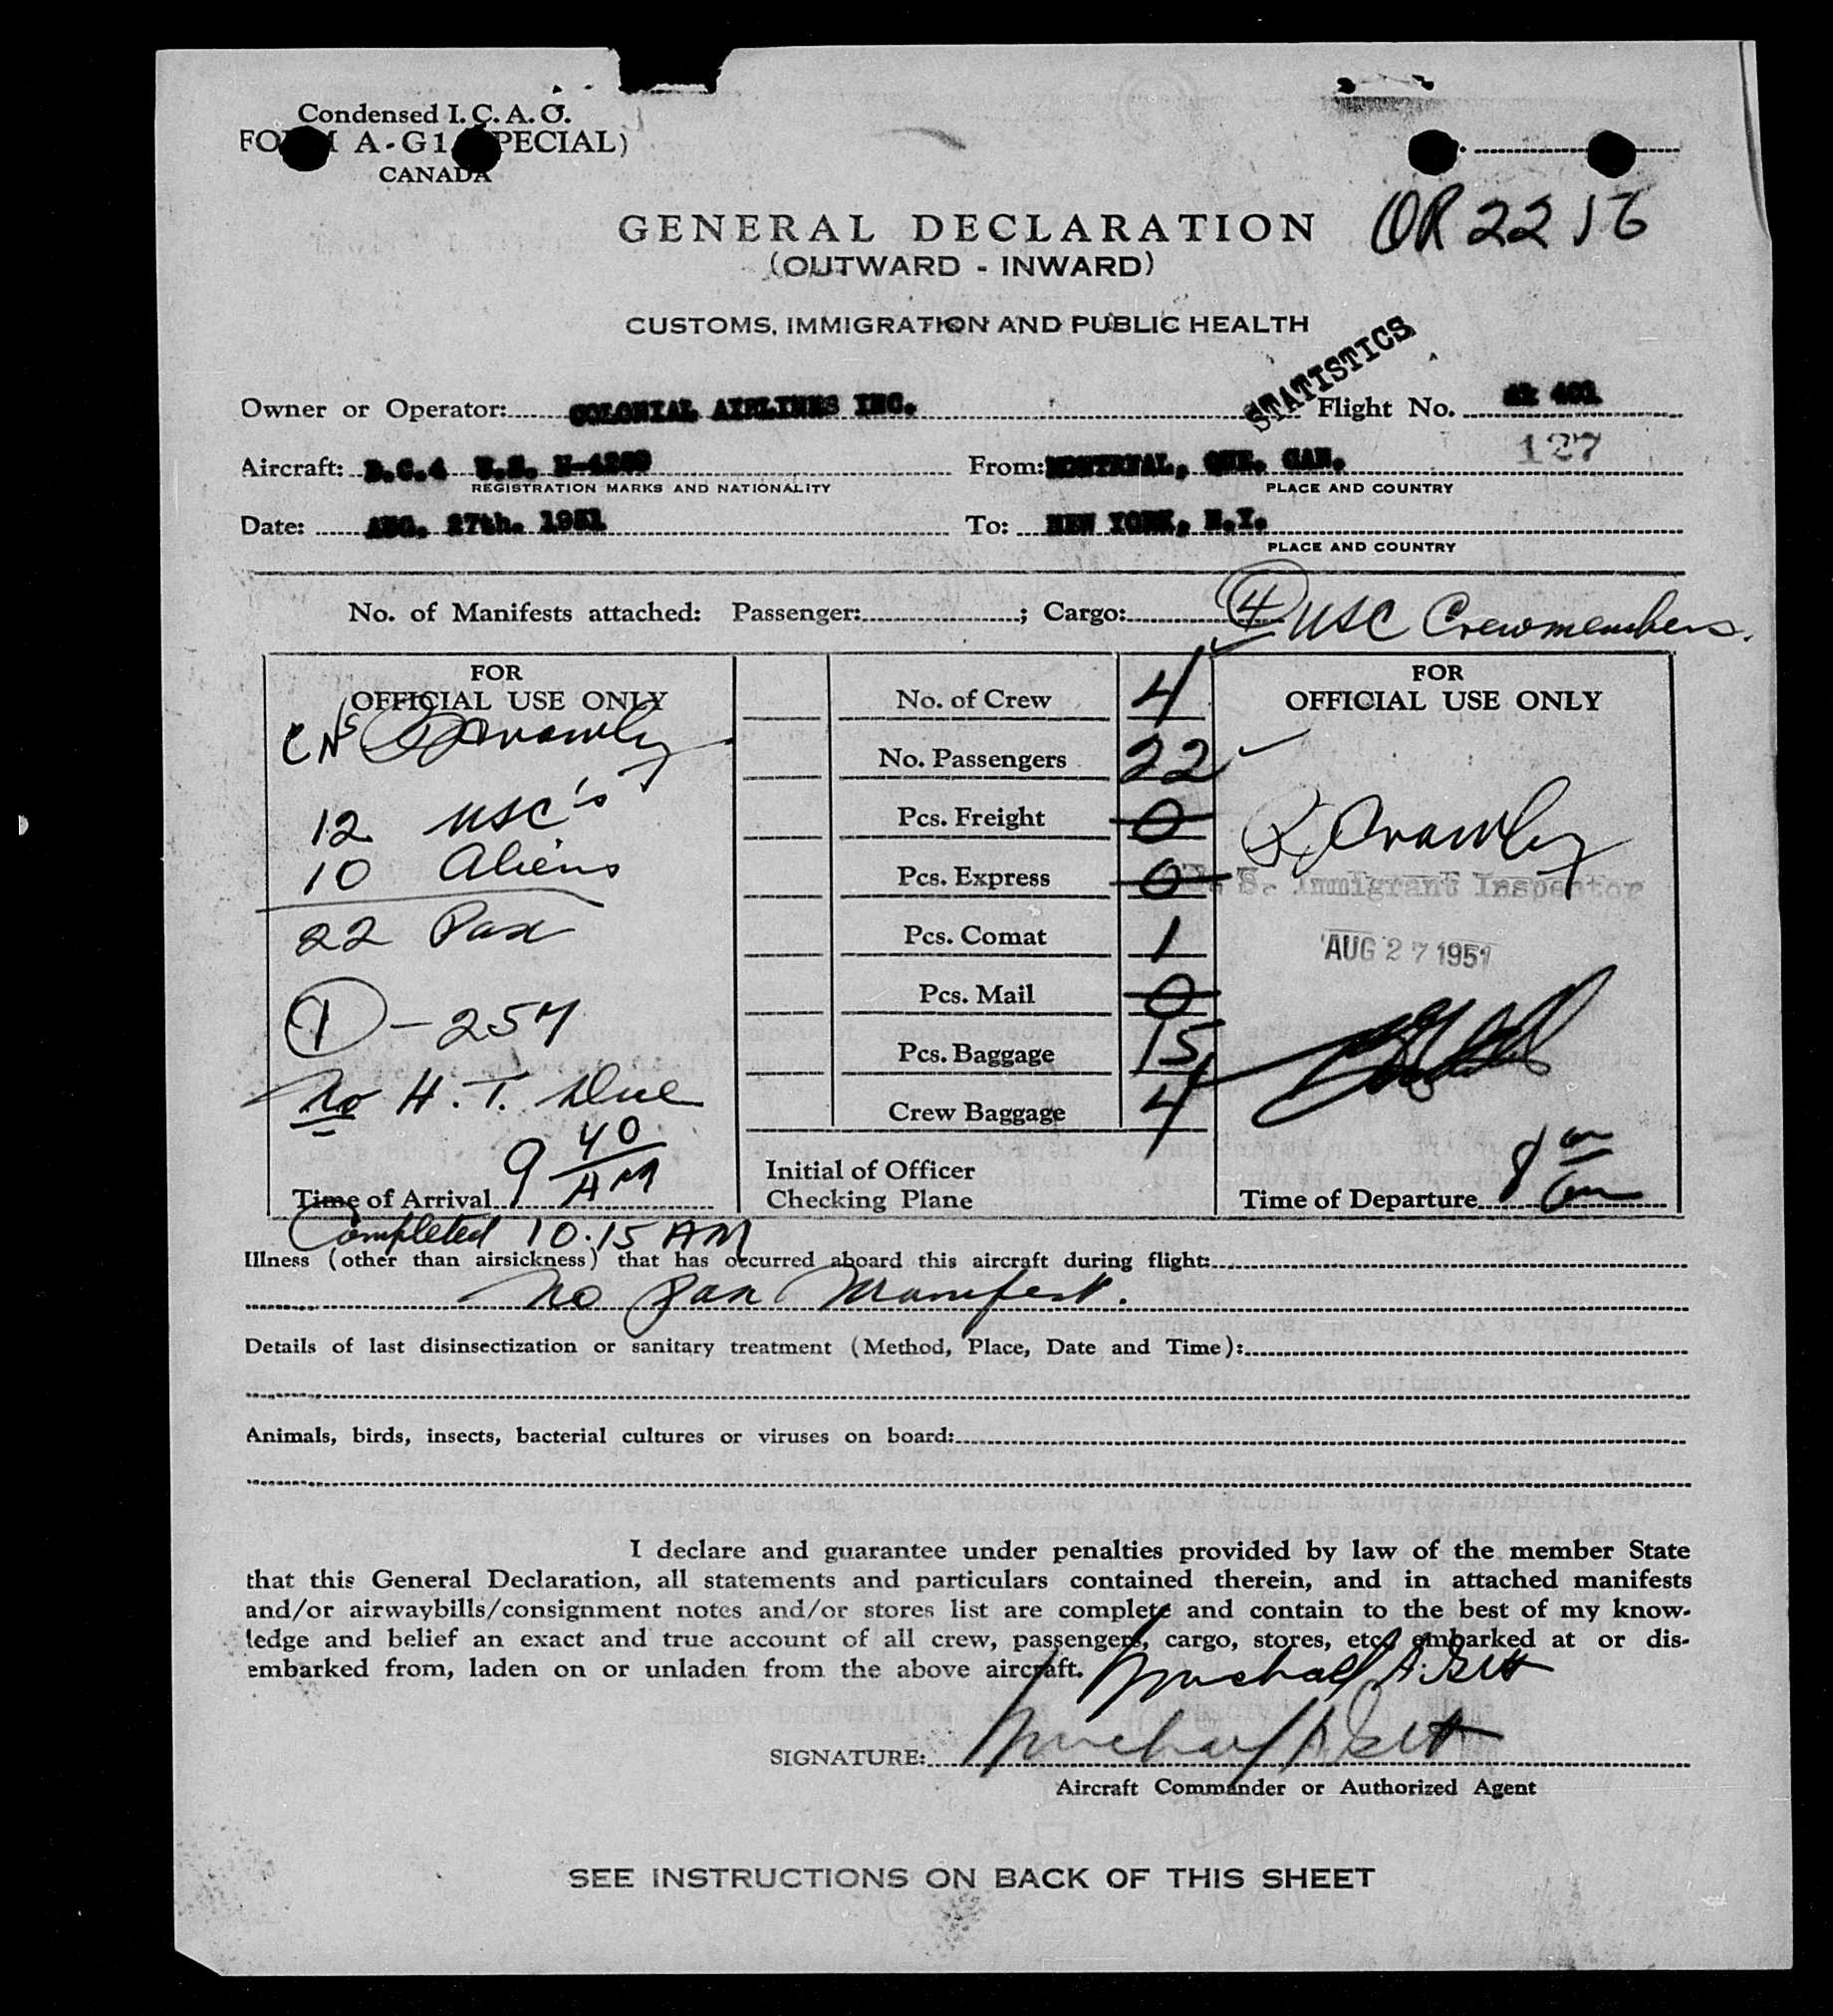 Condensed I. C. A. O.
FORM A-G1 (SPECIAL)
CANADA
GENERAL DECLARATION
OR 22 16
(OUTWARD - INWARD)
CUSTOMS, IMMIGRATION AND PUBLIC HEALTH
STATISTICS
Owner or Operator: COLONIAL AIRLINES INC. Flight No. 401
127
Aircraft: D.C.4 U.S. From: MONTREAL, QUE. CAN.
REGISTRATION MARKS AND NATIONALITY PLACE AND COUNTRY
Date: AUG. 27th. 1951 To: NEW YORK, N.Y.
PLACE AND COUNTRY
No. of Manifests attached: Passenger: ; Cargo: 4 USC Crewmembers.
FOR
OFFICIAL USE ONLY
12 USC's
10 Aliens
22 Pax
1 - 257
No H. T. Due
Time of Arrival 9 40 AM
No. of Crew 4
No. Passengers 22
Pcs. Freight 0
Pcs. Express 0
Pcs. Comat 1
Pcs. Mail 0
Pcs. Baggage 15
Crew Baggage 4
Initial of Officer
Checking Plane
FOR
OFFICIAL USE ONLY
U. S. Immigrant Inspector
AUG 27 1951
Time of Departure 8
Completed 10.15 AM
Illness (other than airsickness) that has occurred aboard this aircraft during flight:
No Pax Manifest.
Details of last disinsectization or sanitary treatment (Method, Place, Date and Time):
Animals, birds, insects, bacterial cultures or viruses on board:
I declare and guarantee under penalties provided by law of the member State
that this General Declaration, all statements and particulars contained therein, and in attached manifests
and/or airwaybills/consignment notes and/or stores list are complete and contain to the best of my know-
ledge and belief an exact and true account of all crew, passengers, cargo, stores, etc., embarked at or dis-
embarked from, laden on or unladen from the above aircraft.
SIGNATURE:
Aircraft Commander or Authorized Agent
SEE INSTRUCTIONS ON BACK OF THIS SHEET